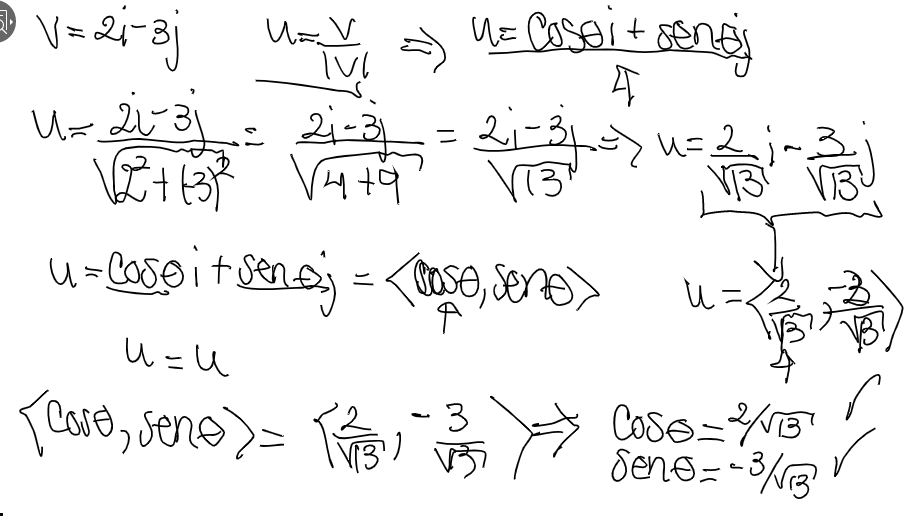 v = 2i - 3j   u = v/|v| ⇒ u = cosθi + senθj
u = (2i - 3j)/√(2² + (-3)²) = (2i - 3j)/√(4 + 9) = (2i - 3j)/√13 ⇒ u = 2/√13 i - 3/√13 j
u = cosθi + senθj = <cosθ, senθ>   u = <2/√13, -3/√13>
u = u
<cosθ, senθ> = <2/√13, -3/√13> ⇒ cosθ = 2/√13 ✓
senθ = -3/√13 ✓